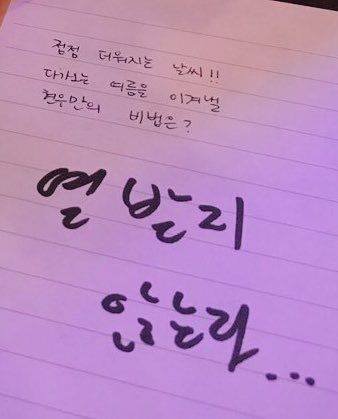 점점 더워지는 날씨!!
다가오는 여름을 이겨낼
현우만의 비법은?
열 발리
안난다...